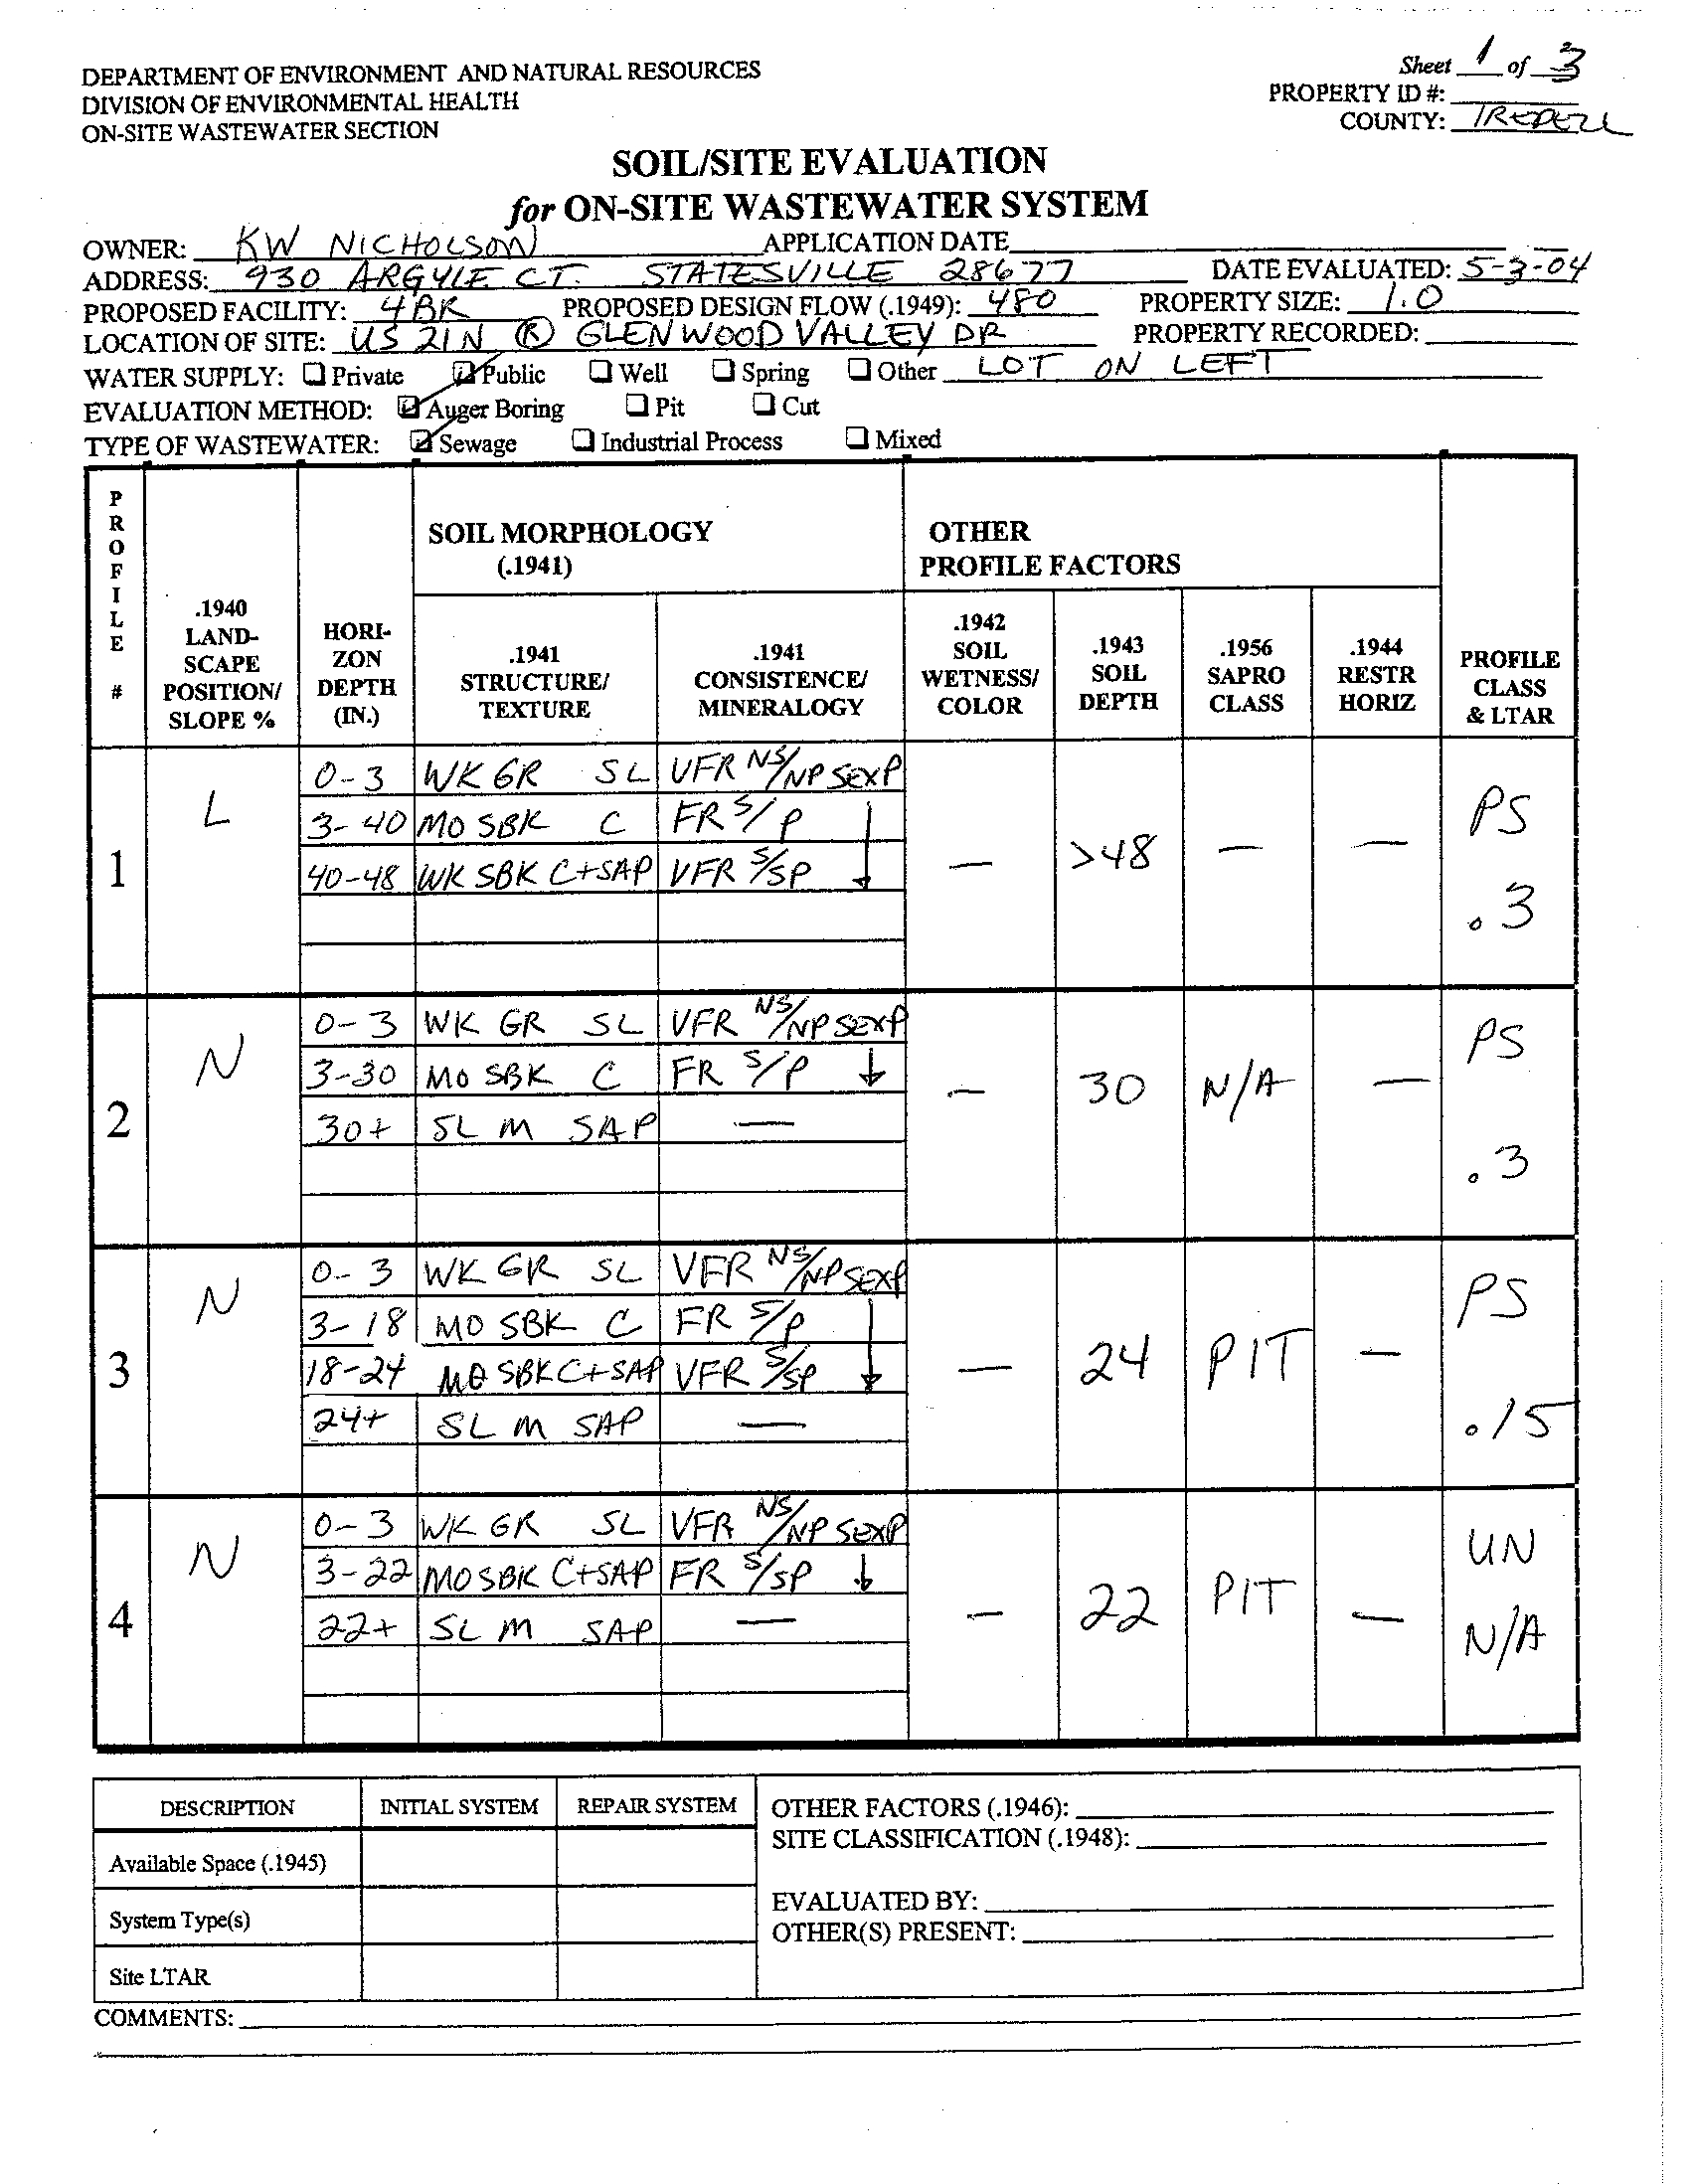 Sheet 1 of 3
DEPARTMENT OF ENVIRONMENT AND NATURAL RESOURCES
PROPERTY ID #:
DIVISION OF ENVIRONMENTAL HEALTH
COUNTY: IREDELL
ON-SITE WASTEWATER SECTION
SOIL/SITE EVALUATION
for ON-SITE WASTEWATER SYSTEM
OWNER: KW NICHOLSON APPLICATION DATE
ADDRESS: 930 ARGYLE CT. STATESVILLE 28677 DATE EVALUATED: 5-3-04
PROPOSED FACILITY: 4BR PROPOSED DESIGN FLOW (.1949): 480 PROPERTY SIZE: 1.0
LOCATION OF SITE: US 21N (R) GLENWOOD VALLEY DR PROPERTY RECORDED:
WATER SUPPLY: ☐ Private ☑ Public ☐ Well ☐ Spring ☐ Other LOT ON LEFT
EVALUATION METHOD: ☑ Auger Boring ☐ Pit ☐ Cut
TYPE OF WASTEWATER: ☑ Sewage ☐ Industrial Process ☐ Mixed
PROFILE #
.1940 LAND-SCAPE POSITION/ SLOPE %
HORI-ZON DEPTH (IN.)
SOIL MORPHOLOGY (.1941)
.1941 STRUCTURE/ TEXTURE
.1941 CONSISTENCE/ MINERALOGY
OTHER PROFILE FACTORS
.1942 SOIL WETNESS/ COLOR
.1943 SOIL DEPTH
.1956 SAPRO CLASS
.1944 RESTR HORIZ
PROFILE CLASS & LTAR
1 L
0-3 WK GR SL VFR NS/NP SEXP
3-40 MO SBK C FR S/P ↓
40-48 WK SBK C+SAP VFR S/SP
— >48 — — PS .3
2 N
0-3 WK GR SL VFR NS/NP SEXP
3-30 MO SBK C FR S/P ↓
30+ SL M SAP —
— 30 N/A — PS .3
3 N
0-3 WK GR SL VFR NS/NP SEXP
3-18 MO SBK C FR S/P ↓
18-24 MO SBK C+SAP VFR S/SP
24+ SL M SAP —
— 24 PIT — PS .15
4 N
0-3 WK GR SL VFR NS/NP SEXP
3-22 MO SBK C+SAP FR S/SP ↓
22+ SL M SAP —
— 22 PIT — UN N/A
DESCRIPTION INITIAL SYSTEM REPAIR SYSTEM
Available Space (.1945)
System Type(s)
Site LTAR
OTHER FACTORS (.1946):
SITE CLASSIFICATION (.1948):
EVALUATED BY:
OTHER(S) PRESENT:
COMMENTS: